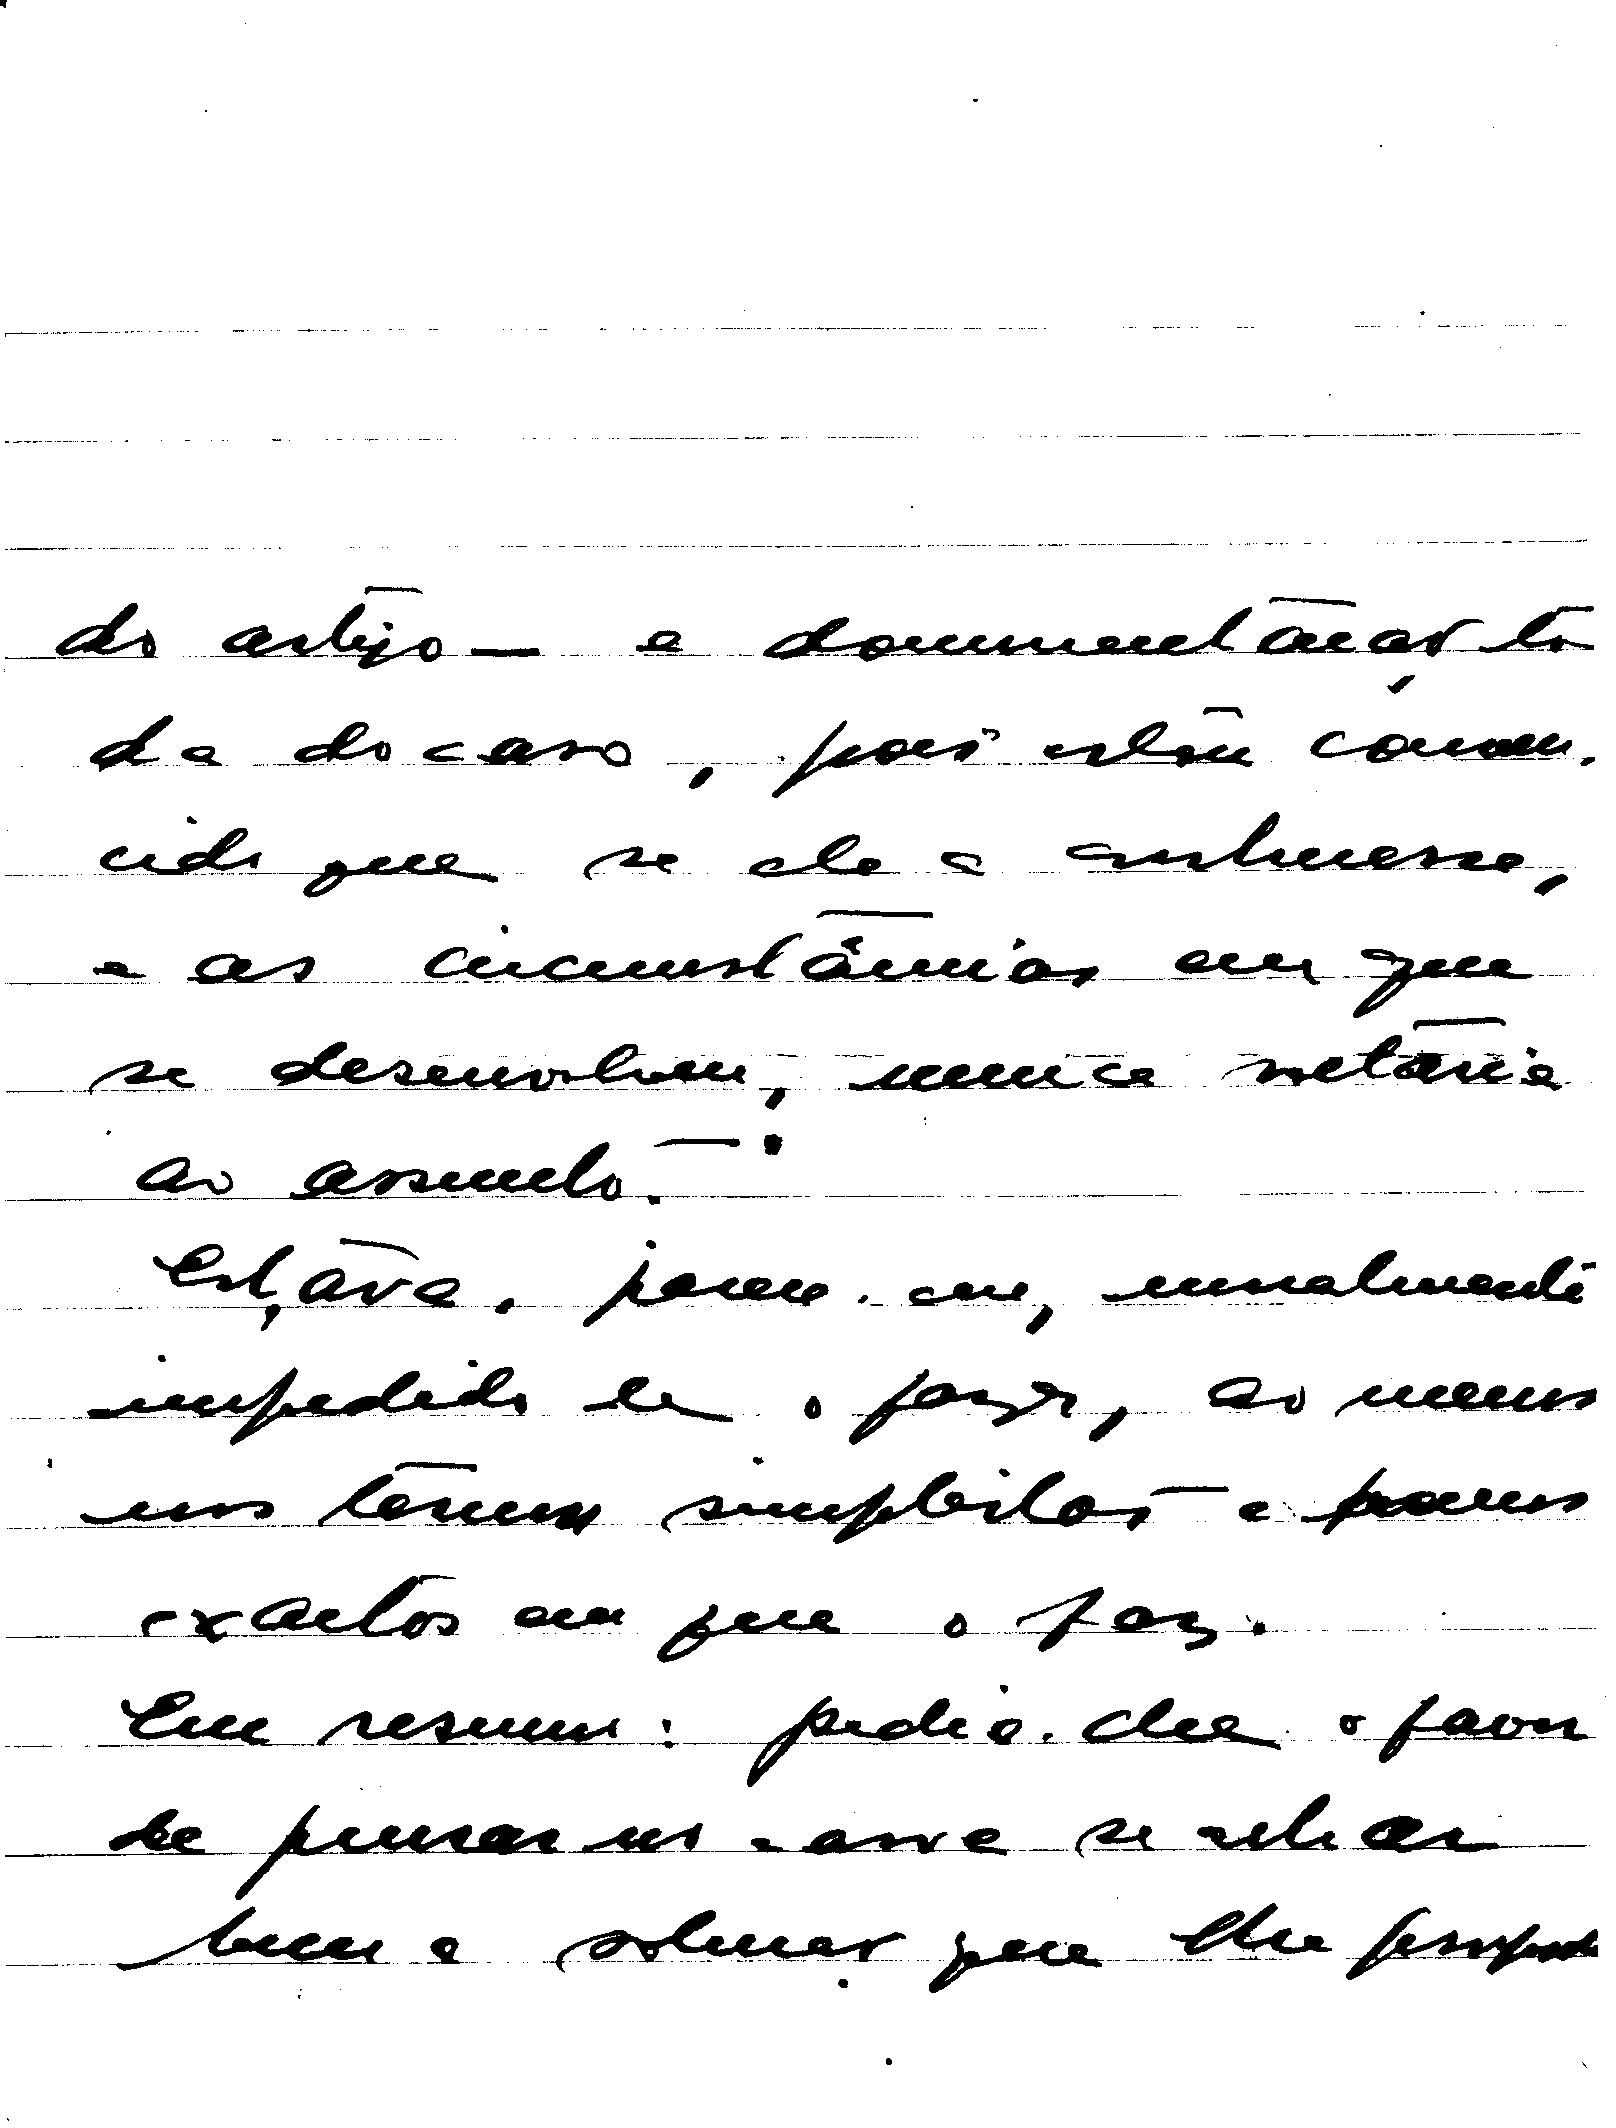 do artigo — e documentação to
da do caso, pois estou conven-
cido que se ele a estivesse,
e as circunstâncias em que
se desenvolveu, nunca voltaria
ao assunto.
Estava, parece-me, moralmente
impedido de o fazer, ao menos
nos termos simplistas e pouco
exactos em que o faz.
Em resumo: pedia-lhe o favor
de pensar no caso e se achar
bem a solução que lhe